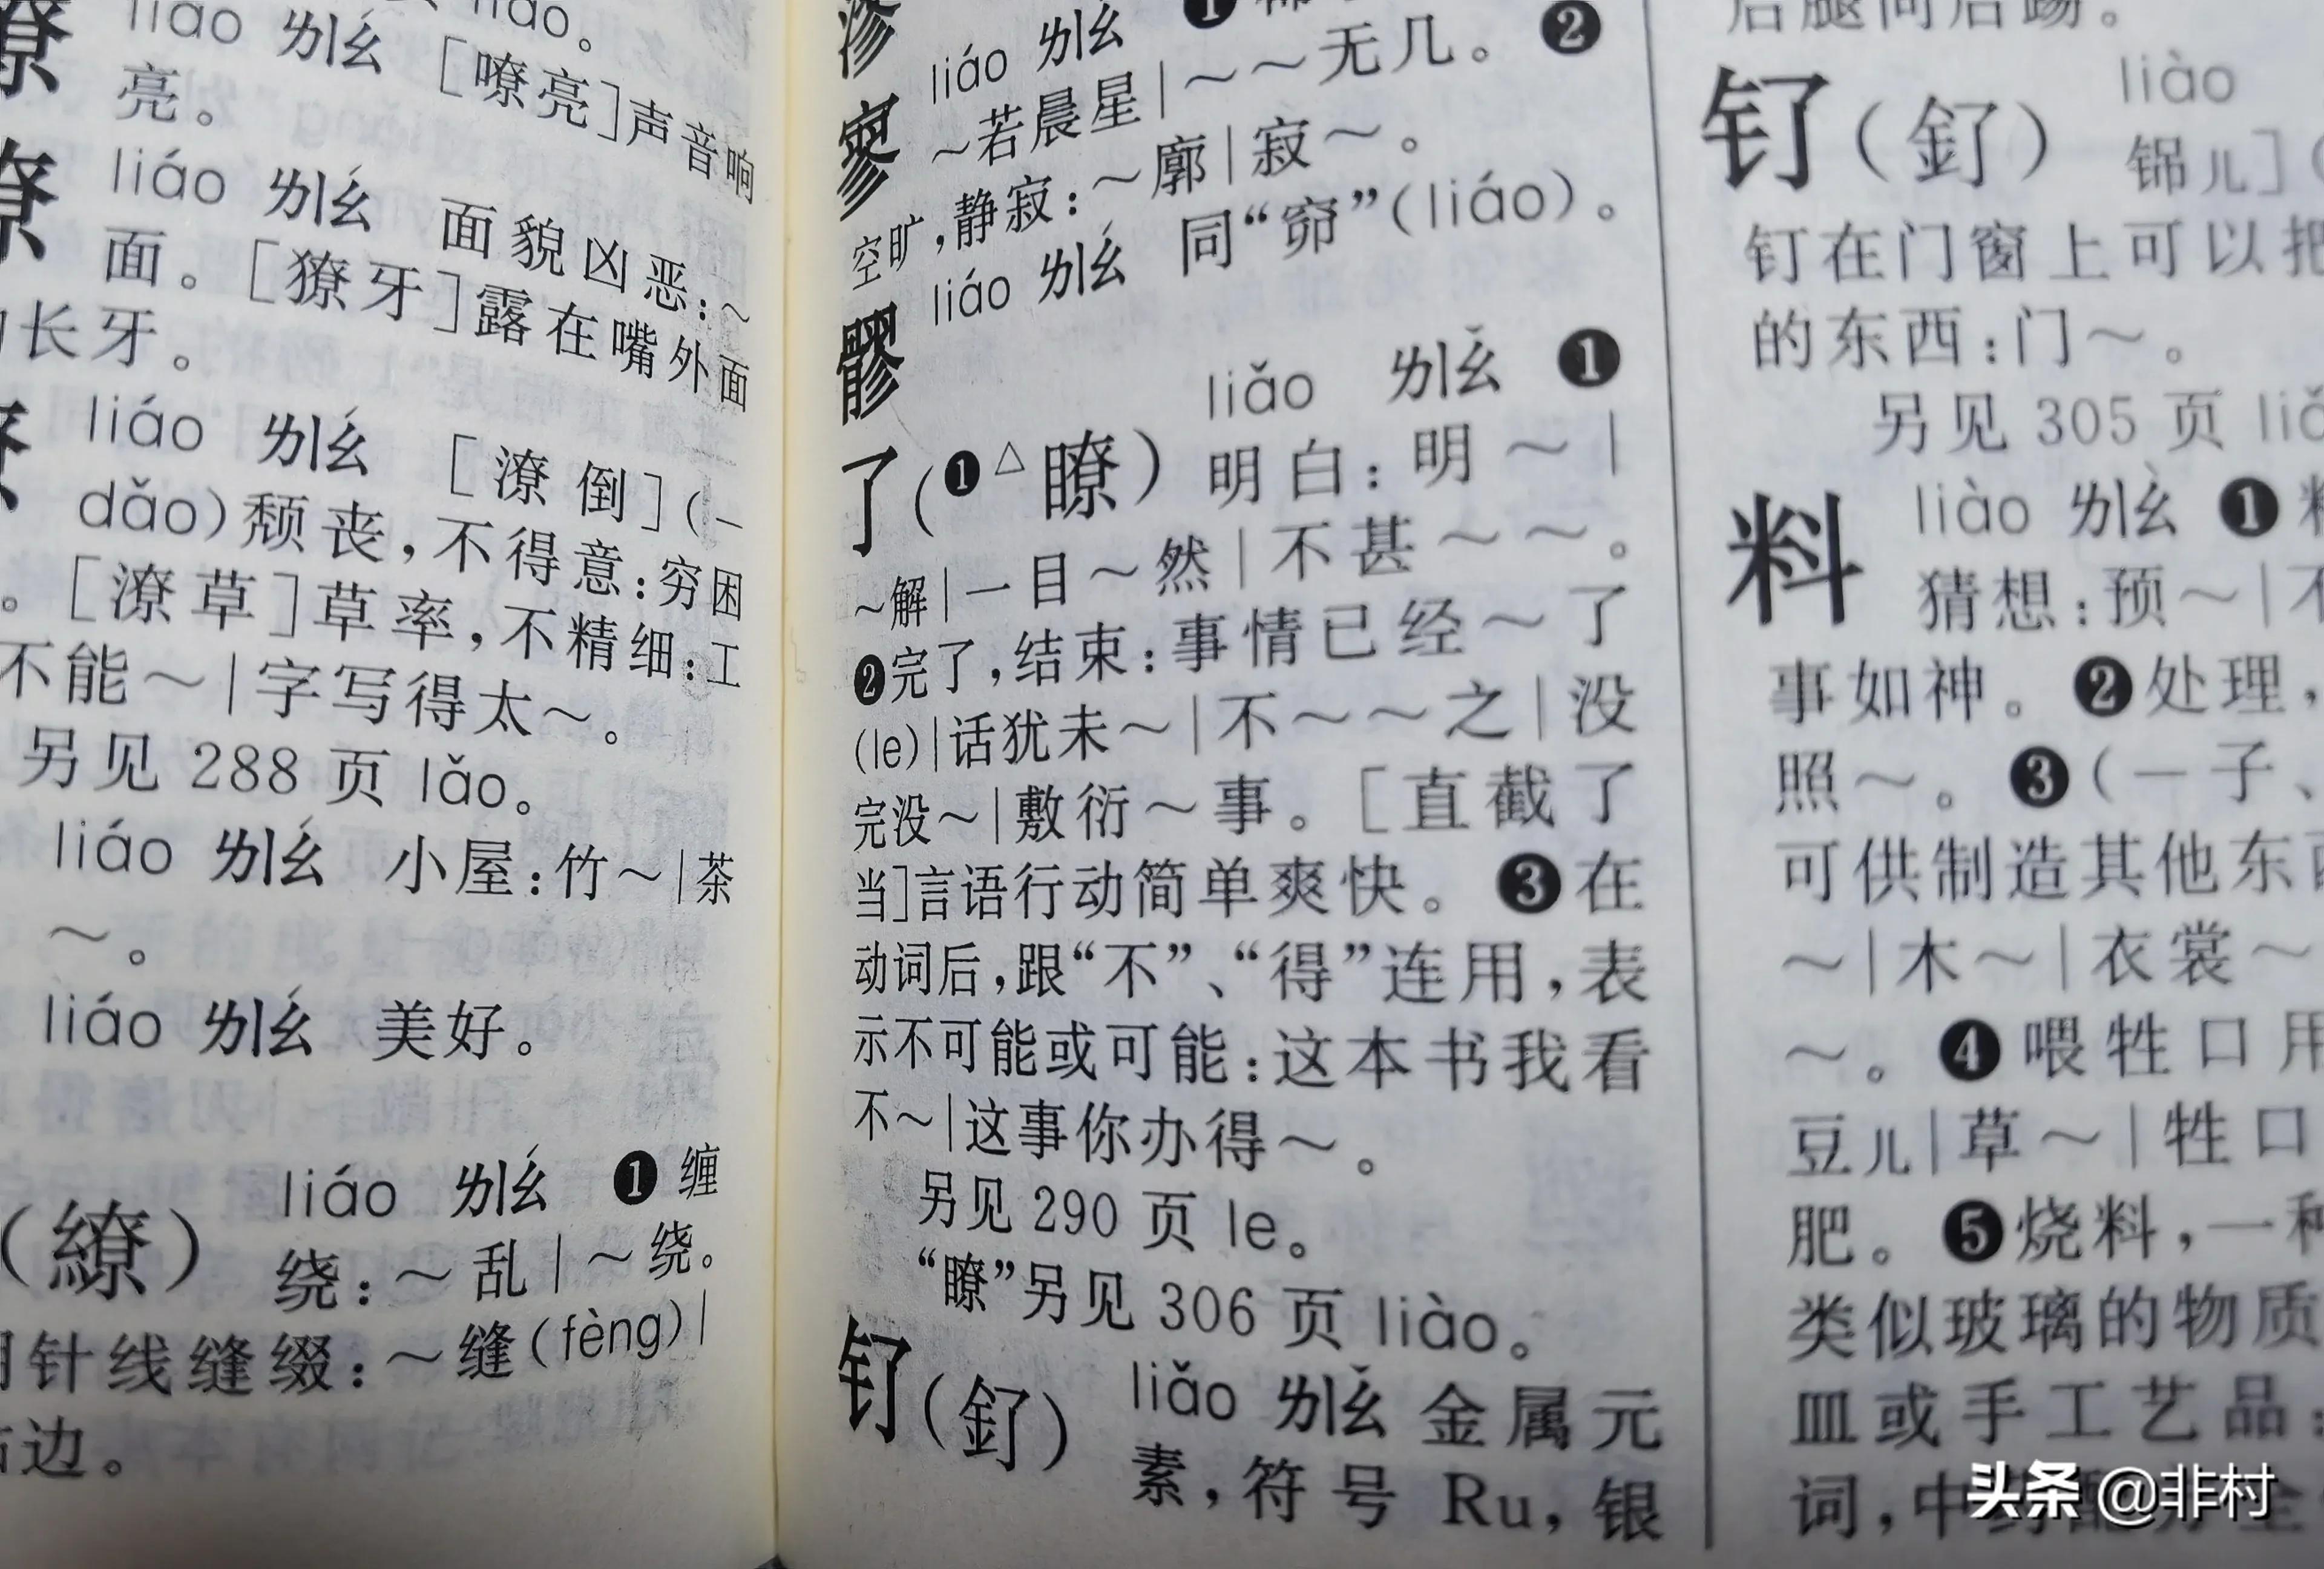 liáo ㄌㄧㄠˊ [嘹亮]声音响
亮。
liáo ㄌㄧㄠˊ 面貌凶恶:~
面。[獠牙]露在嘴外面
长牙。
liáo ㄌㄧㄠˊ [潦倒](-
dǎo)颓丧,不得意:穷困
。[潦草]草率,不精细:工
不能~|字写得太~。
另见 288 页 lǎo。
liáo ㄌㄧㄠˊ 小屋:竹~|茶
~。
liáo ㄌㄧㄠˊ 美好。
(繚) liáo ㄌㄧㄠˊ ❶缠
绕:~乱|~绕。
针线缝缀:~缝(fèng)|
边。
寥 liáo ㄌㄧㄠˊ ❶
~若晨星|~~无几。❷
空旷,静寂:~廓|寂~。
髎 liáo ㄌㄧㄠˊ 同“窌”(liáo)。
了(❶△瞭) liǎo ㄌㄧㄠˇ ❶
明白:明~|
~解|一目~然|不甚~~。
❷完了,结束:事情已经~了
(le)|话犹未~|不~~之|没
完没~|敷衍~事。[直截了
当]言语行动简单爽快。❸在
动词后,跟“不”、“得”连用,表
示不可能或可能:这本书我看
不~|这事你办得~。
另见 290 页 le。
“瞭”另见 306 页 liào。
钌(釕) liǎo ㄌㄧㄠˇ 金属元
素,符号 Ru,银
后腿向后踢。
钌(釕) liào
铞儿](
钉在门窗上可以把
的东西:门~。
另见 305 页
料 liào ㄌㄧㄠˋ ❶
猜想:预~|不
事如神。❷处理,
照~。❸(-子、
可供制造其他东西
~|木~|衣裳~
~。❹喂牲口用
豆儿|草~|牲口
肥。❺烧料,一种
类似玻璃的物质
皿或手工艺品:
词,中
头条 @非村